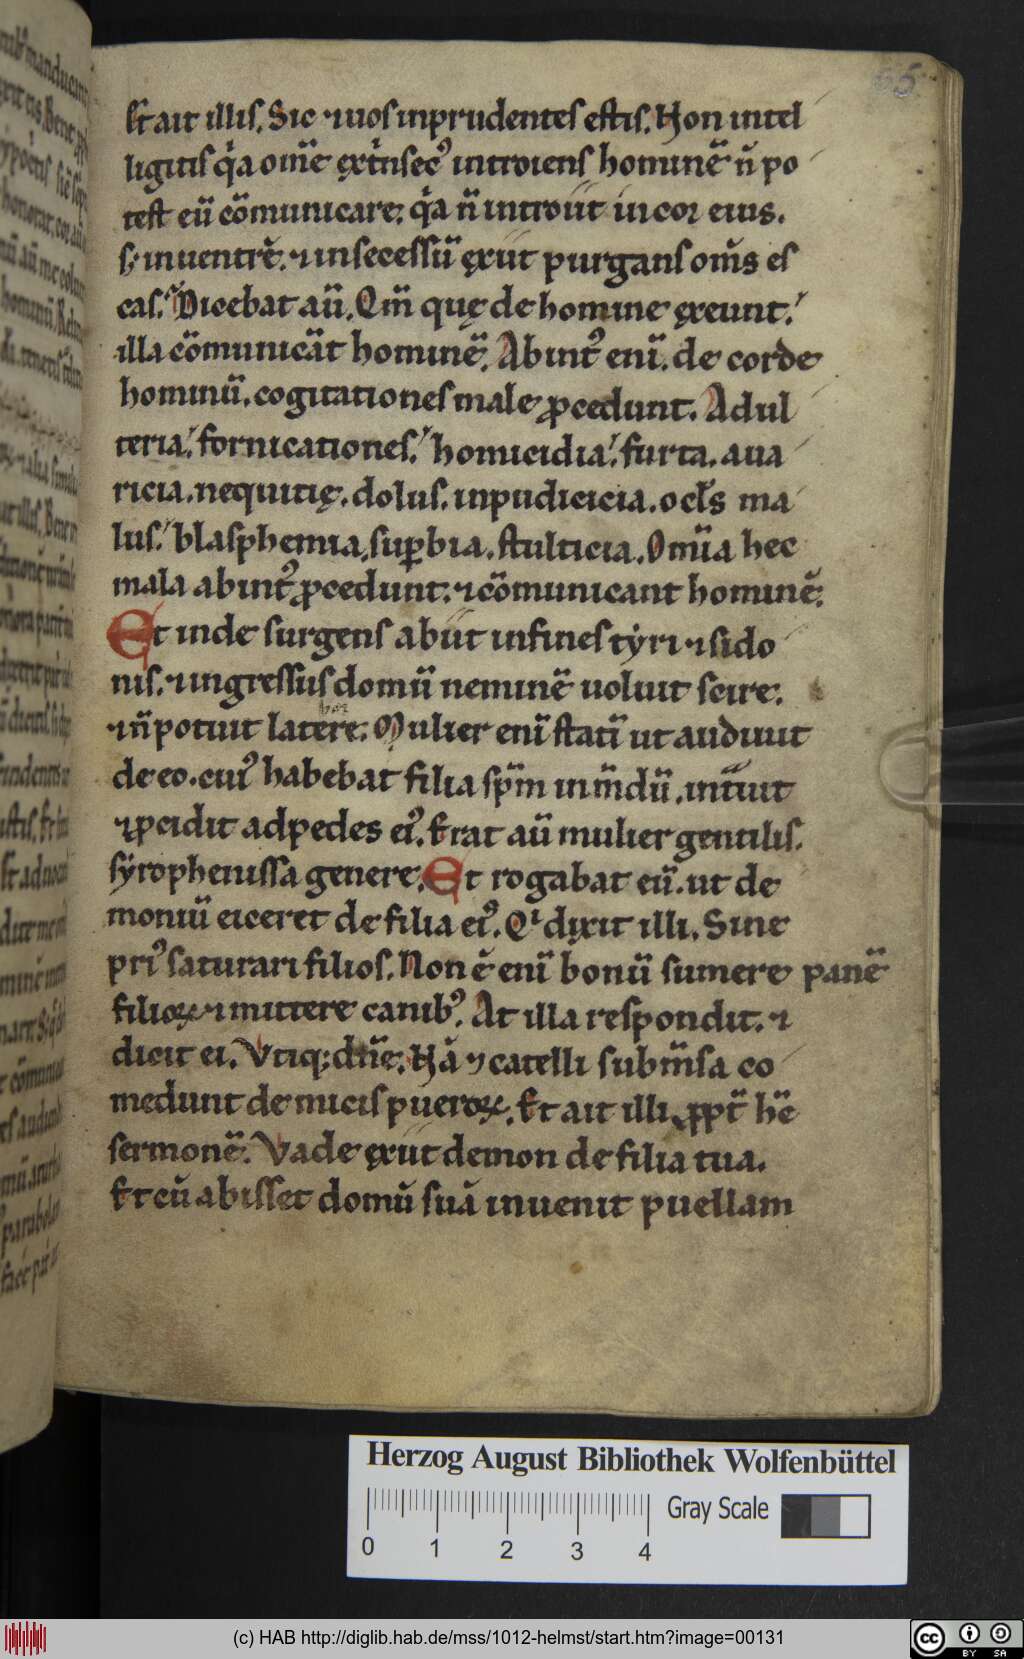 65
Et ait illis. Sic ⁊ uos inprudentes estis. Non intel
ligitis q̇a om̄e extͥnsecꝰ introiens hominē n̄ po
test eū cōmunicare; q̇a n̄ introiit in cor eius.
s; in uentrē. ⁊ in secessū exiit purgans om̄s es
cas. Dicebat aū. Qm̄ quę de homine exeunt.
illa cōmunicāt hominē. Ab intꝰ enī. de corde
hominū. cogitationes male ꝓcedunt. Adul
teria. fornicationes. homicidia. furta. aua
ricia. nequitię. dolus. inpudicicia. ocl̄s ma
lus. blasphemia. suꝑbia. stulticia. Om̄ia hec
mala ab intꝰ ꝓcedunt. ⁊ cōmunicant hominē.
Et inde surgens abiit in fines tyri ⁊ sido
nis. ⁊ ingressus domū neminē uoluit scire.
⁊ n̄ potuit latere. Mulier enī statī ut audiuit
de eo. cuiꝰ habebat filia sp̄m inm̄dū. intͣuit
⁊ ꝓcidit ad pedes eiꝰ. Erat aū mulier gentilis.
syrophenissa genere. Et rogabat eū. ut de
moniū eiceret de filia eiꝰ. Qͥ dixit illi. Sine
priꝰ saturari filios. Non ē enī bonū sumere panē
filioꝝ ⁊ mittere canibꝰ. At illa respondit. ⁊
dicit ei. Vtiq; dn̄e. Nā ⁊ catelli sub m̄sa co
medunt de micis pueroꝝ. Et ait illi. ꝓpt̄ hc̄
sermonē. Vade exiit demon de filia tua.
Et cū abisset domū suā inuenit puellam
Herzog August Bibliothek Wolfenbüttel
Gray Scale
0 1 2 3 4
(c) HAB http://diglib.hab.de/mss/1012-helmst/start.htm?image=00131
cc BY SA